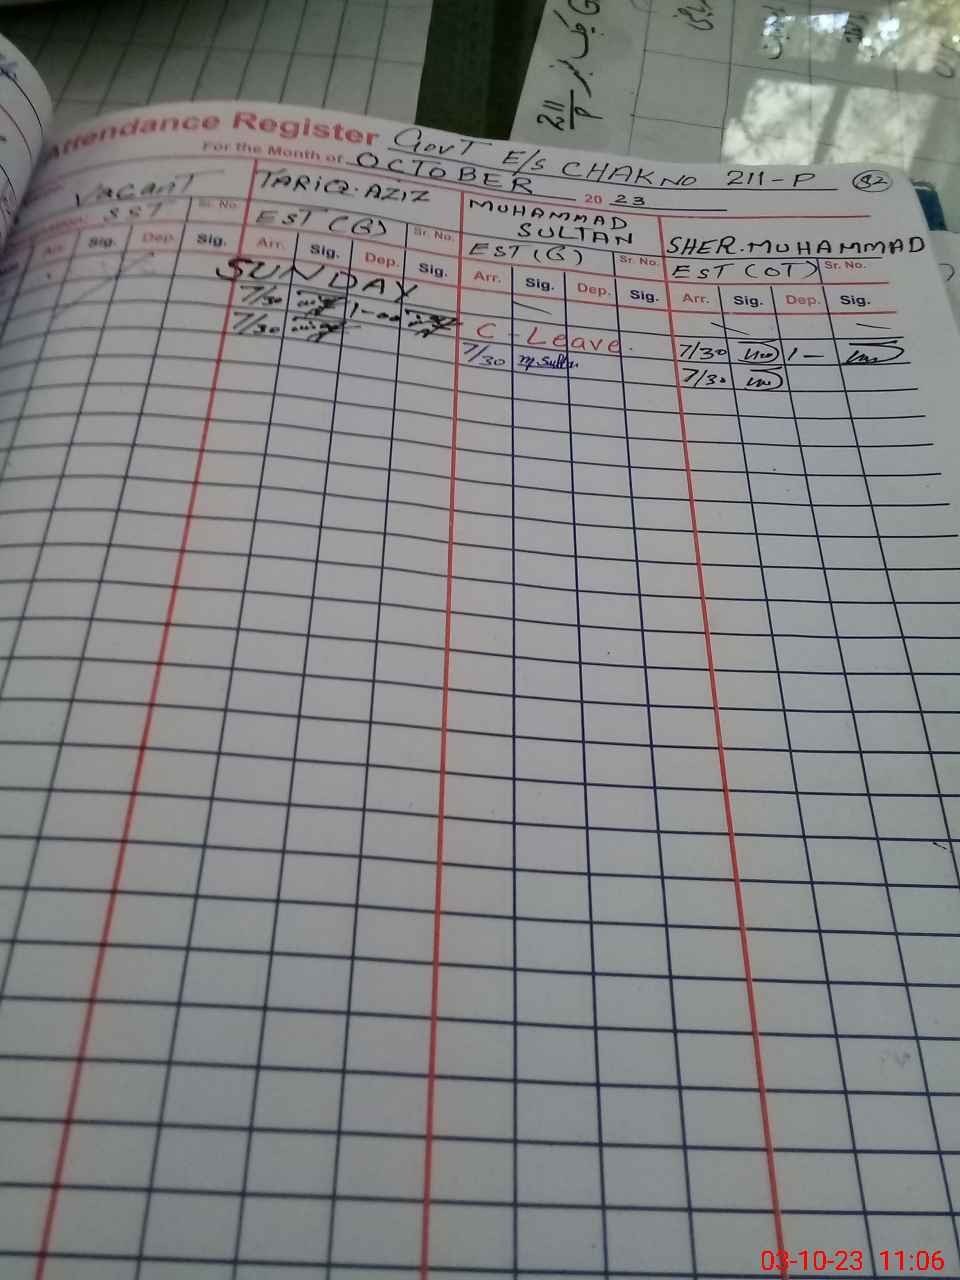 211/P
Attendance Register GOVT E/S CHAK NO 211-P 32
For the Month of OCTOBER 20 23
Vacant
SST Sr. No.
Arr. Sig. Dep. Sig.
TARIQ.AZIZ
EST (G) Sr. No.
Arr. Sig. Dep. Sig.
MUHAMMAD
SULTAN
EST (G) Sr. No.
Arr. Sig. Dep. Sig.
SHER.MUHAMMAD
EST (OT) Sr. No.
Arr. Sig. Dep. Sig.
SUNDAY
7/30 1-00 C-Leave. 7/30 1-
7/30 7/30 M.Sultan 7/30
03-10-23 11:06